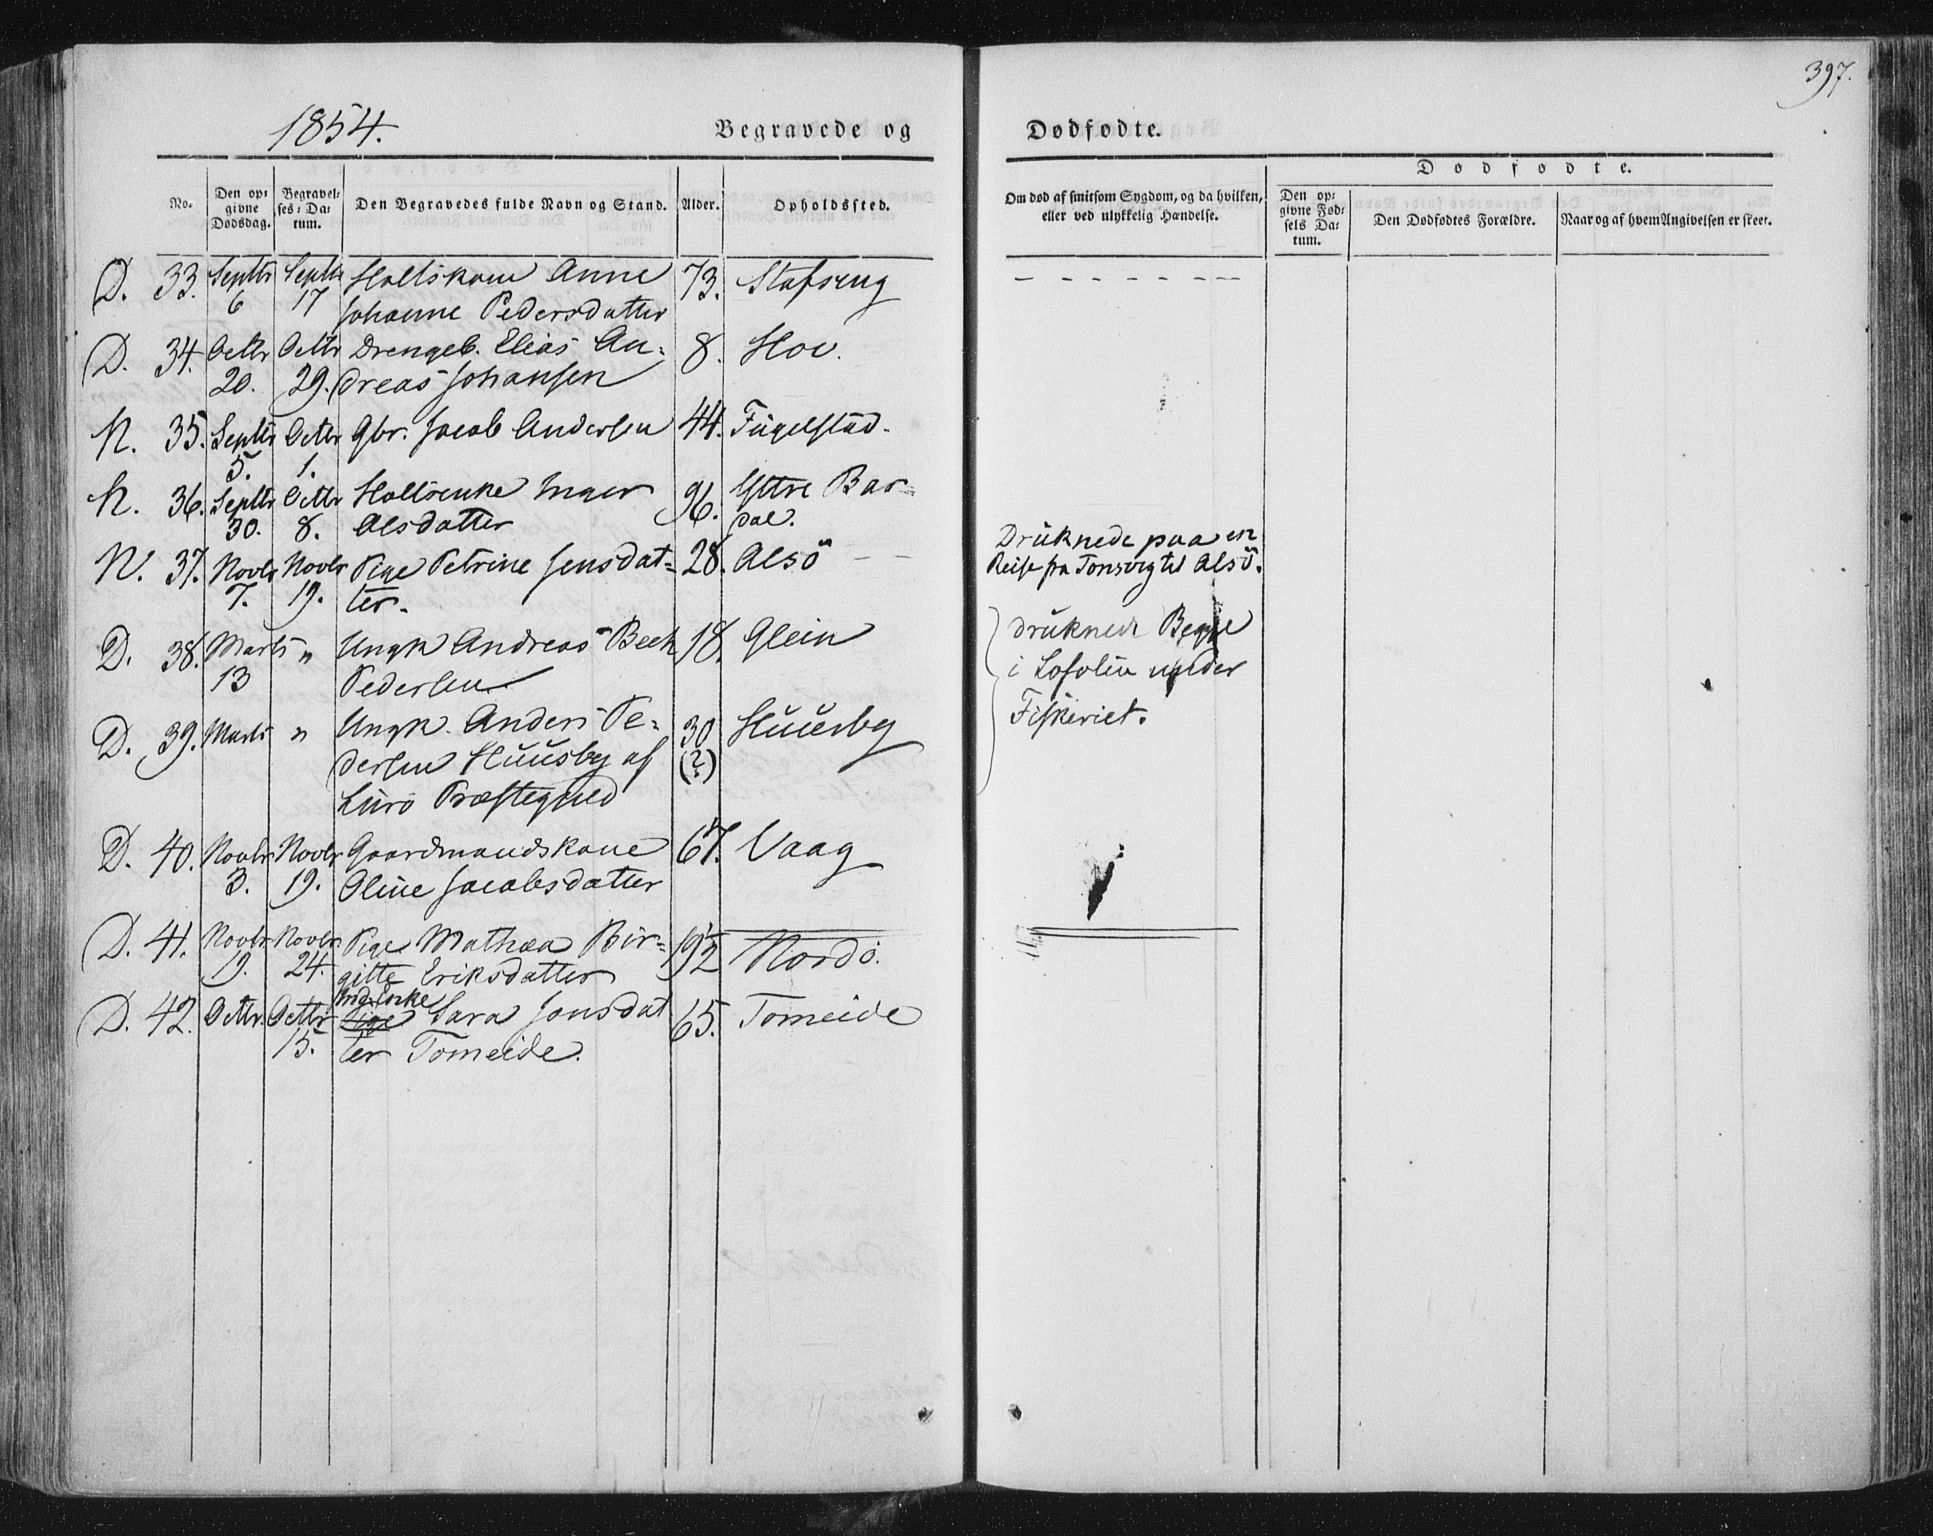 397.
1854.
Begravede og
Dødfødte.
No.
Den op-
givne
Dødsdag.
Begravel-
ses-Da-
tum.
Den Begravedes fulde Navn og Stand.
Alder.
Opholdssted.
Om død af smitsom Sygdom, og da hvilken,
eller ved ulykkelig Hændelse.
Dødfødte.
Den op-
givne Fød-
sels Da-
tum.
Den Dødfødtes Forældre.
Naar og af hvem Angivelsen er skeet.
D. 33. Septbr Septbr Holtskone Anne 73. Stafseng
6 17 Johanne Pedersdatter
D. 34. Octbr Octbr Drengeb. Elias An- 8. Hov.
20. 29. dreas Johansen
N. 35. Septbr Octbr Gbr. Jacob Andersen 44. Fugelstad.
5. 1.
N. 36. Septbr Octbr Holtsenke Inger 96. Yttre Bar-
30. 8. Olsdatter dal.
Druknede paa en
N. 37. Novbr Novbr Pige Petrine Jensdat- 28. Alsö
Reise fra Tonsvig til Alsö.
7. 19. ter.
D. 38. Marts " Ungk Andreas Bech 18. Glein
druknede Begge
13 Pedersen
i Lofoten under
D. 39. Marts " Ungk. Anders Pe- 30 Huusby
Fiskeriet.
dersen Huusby af (?)
Lurö Præstegjeld
D. 40. Novbr Novbr Gaardmandskone 67. Vaag
3. 19. Oline Jacobsdatter
D. 41. Novbr Novbr. Pige Mathea Bir- 19½ Nordö.
19. 24. gitte Eriksdatter
Inds. Enke
D. 42. Octbr. Octbr Pige Sara Jonsdat 65. Tomeide
15. ter Tomeide.